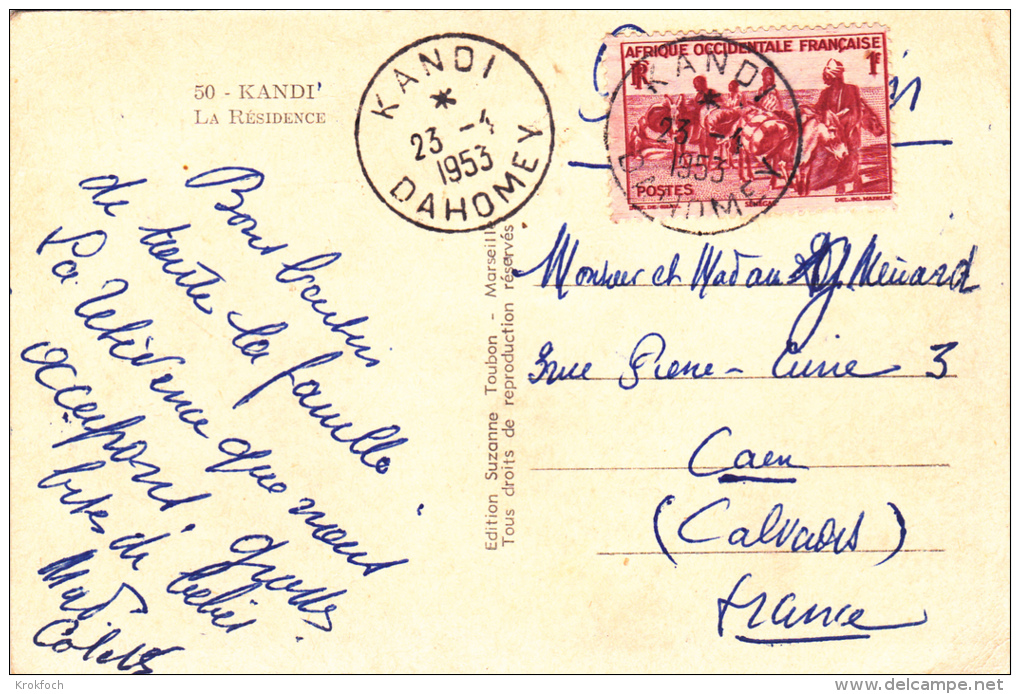 50 - KANDI
LA RÉSIDENCE
KANDI
23 - 4
1953
DAHOMEY
AFRIQUE OCCIDENTALE FRANÇAISE
RF
1F
KANDI
23 - 4
1953
DAHOMEY
POSTES
SÉNÉGAL
Bons baisers
de toute la famille
La Résidence que nous
occupons, grosses
bises de bébés
Colette
Edition Suzanne Toubon - Marseille
Tous droits de reproduction réservés
Monsieur et Madame Menard
3 rue Pierre - Curie 3
Caen
(Calvados)
France
Krokfoch
www.delcampe.net